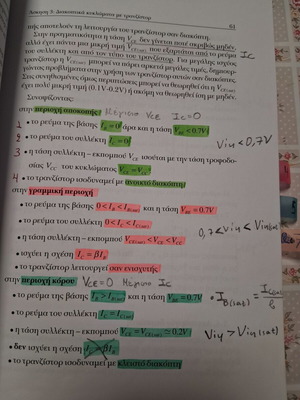 Άσκηση 3: Διακοπτικά κυκλώματα με τρανζίστορ 61
τής αποτελούν τη λειτουργία του τρανζίστορ σαν διακόπτη.
Στην πραγματικότητα η τάση V_CE δεν γίνεται ποτέ ακριβώς μηδέν,
αλλά έχει πάντα μια μικρή τιμή V_CE(sat) που εξαρτάται από το ρεύμα Ic
του συλλέκτη και από τον τύπο του τρανζίστορ. Για μεγάλης ισχύος
τρανζίστορ η V_CE(sat) μπορεί να πάρει αρκετά μεγάλες τιμές, δημιουργ-
ώντας προβλήματα στην χρήση των τρανζίστορ αυτών σαν διακόπτες.
Στις συνηθισμένες όμως περιπτώσεις μπορεί να θεωρηθεί ότι η V_CE(sat)
έχει πολύ μικρή τιμή (0.1V-0.2V) ή ακόμη να θεωρηθεί ίση με μηδέν.
Συνοψίζοντας:
στην περιοχή αποκοπής: Μέγιστο VCE Ic=0
1 • το ρεύμα της βάσης I_B=0 άρα και η τάση V_BE<0.7V Vin<0,7V
2 • το ρεύμα του συλλέκτη I_C=0
3 • η τάση συλλέκτη – εκπομπού V_CE ισούται με την τάση τροφοδο-
σίας V_CC του κυκλώματος V_CE=V_CC
4 • το τρανζίστορ ισοδυναμεί με ανοικτό διακόπτη
στην γραμμική περιοχή
• το ρεύμα της βάσης 0<I_B<I_B(sat) και η τάση V_BE=0.7V
• το ρεύμα του συλλέκτη 0<I_C<I_C(sat) 0,7<Vin<Vin(sat)
• η τάση συλλέκτη – εκπομπού V_CE(sat)<V_CE<V_CC
• ισχύει η σχέση I_C=βI_B
• το τρανζίστορ λειτουργεί σαν ενισχυτής
στην περιοχή κόρου VCE=0 Μέγιστο Ic
• το ρεύμα της βάσης I_B>I_B(sat) και η τάση V_BE=0.7V • I_B(sat)=
• το ρεύμα του συλλέκτη I_C=I_C(sat)
• η τάση συλλέκτη – εκπομπού V_CE=V_CE(sat)≃0.2V Vin>Vin(sat)
• δεν ισχύει η σχέση I_C=βI_B
• το τρανζίστορ ισοδυναμεί με κλειστό διακόπτη